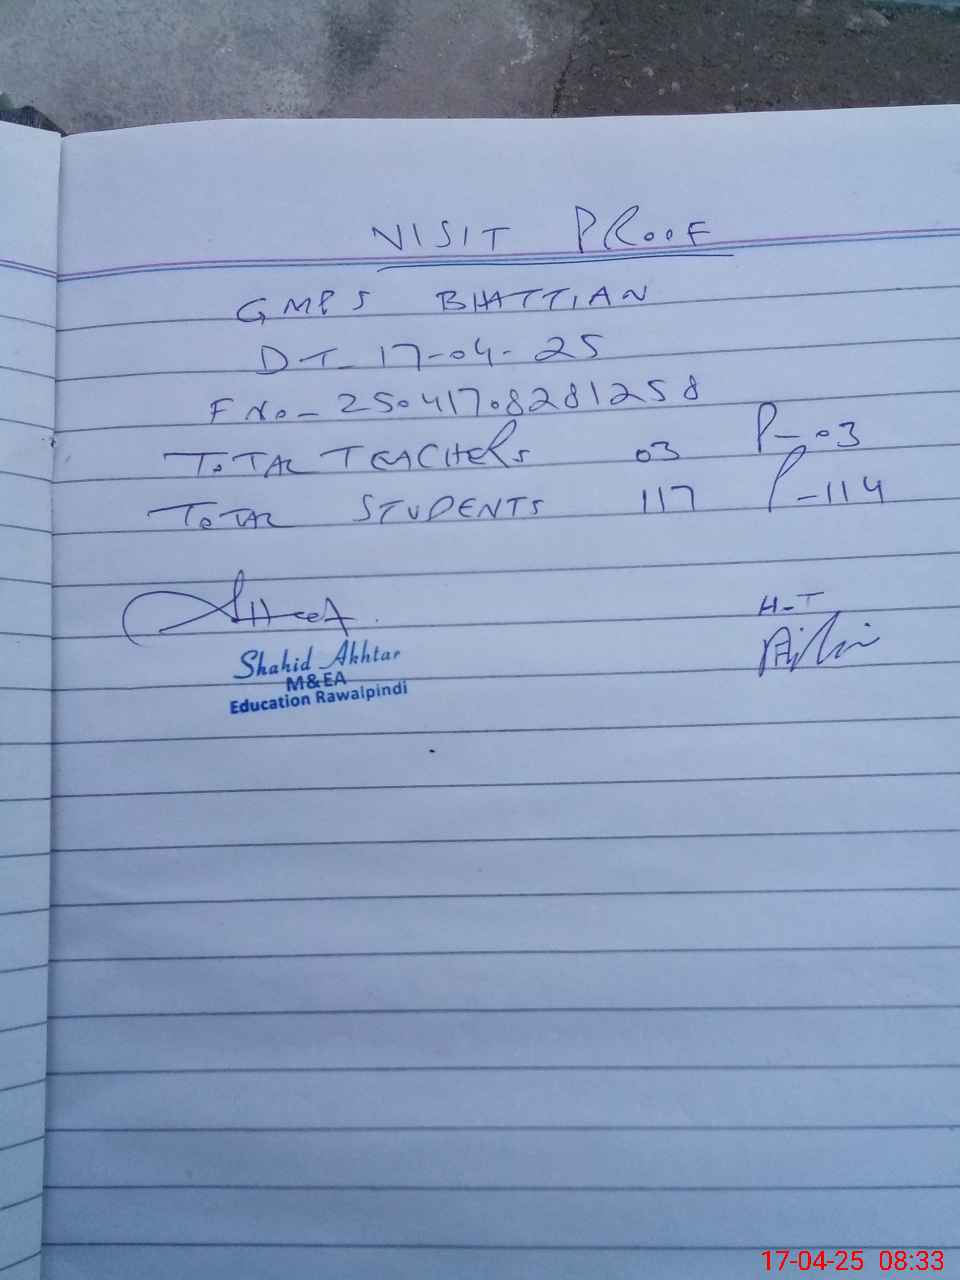 VISIT PROOF
GMPS BHATTIAN
DT_17-04-25
F No_ 25041708281258
TOTAL TEACHERS 03 P-03
TOTAL STUDENTS 117 P-114
H-T
Shahid Akhtar
M&EA
Education Rawalpindi
17-04-25 08:33